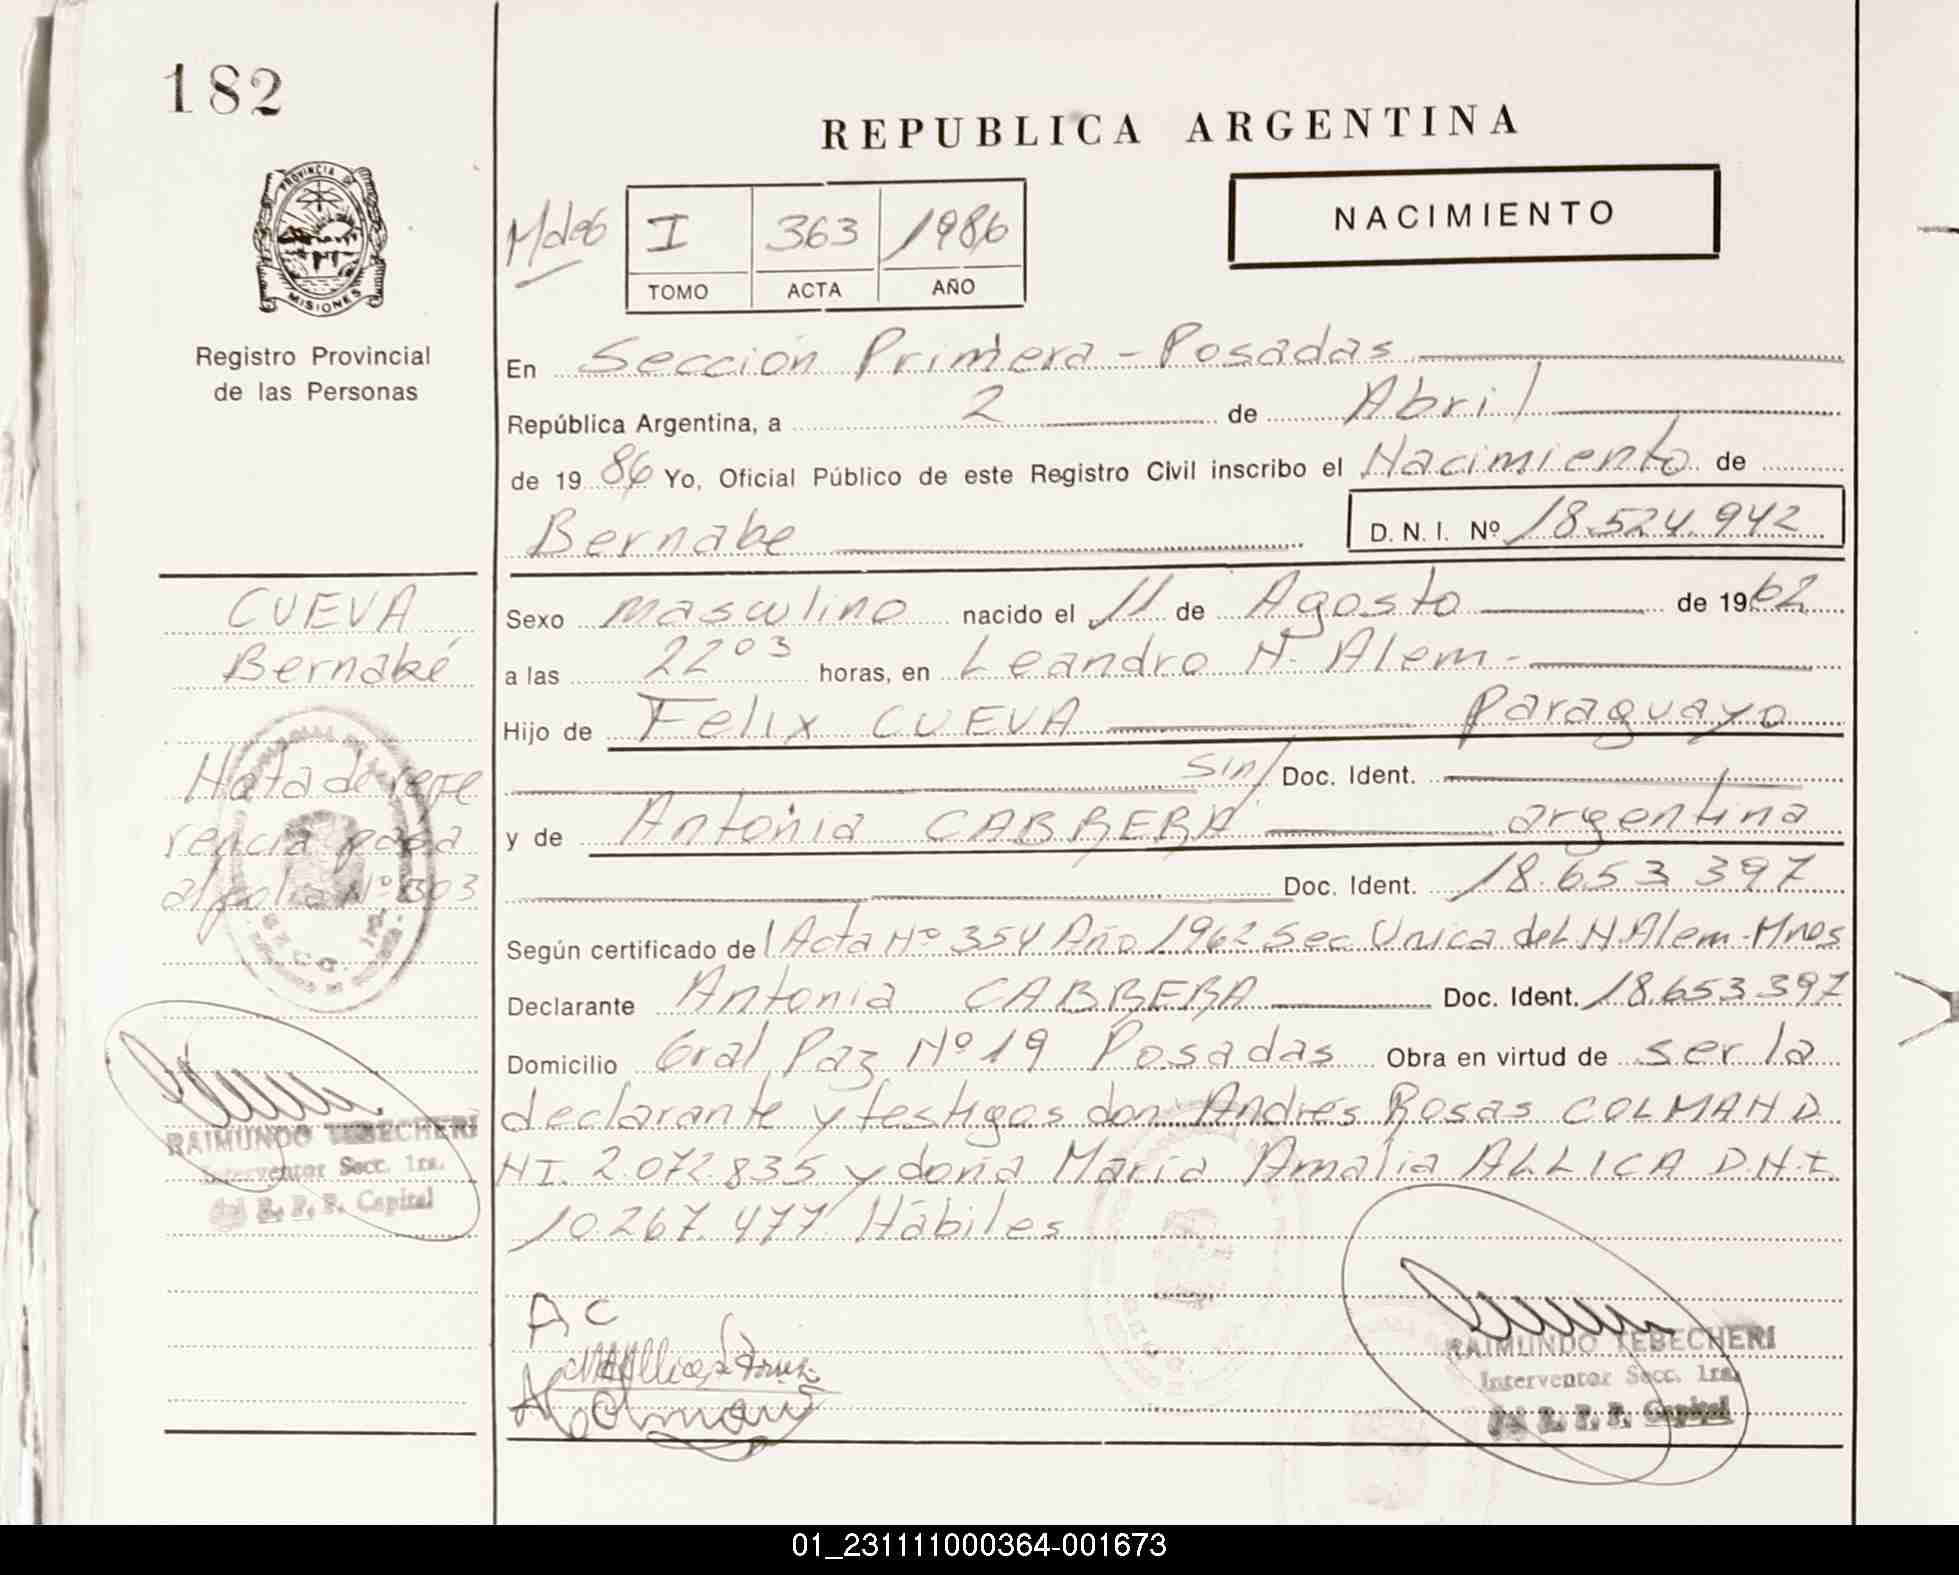 182
REPUBLICA ARGENTINA
NACIMIENTO
PROVINCIA DE
MISIONES
Registro Provincial
de las Personas
I 363 1986
TOMO ACTA AÑO
En Sección Primera - Posadas
República Argentina, a 2 de Abril
de 19 86 Yo, Oficial Público de este Registro Civil inscribo el Nacimiento de
Bernabe D. N. I. Nº 18.524.942
CUEVA
Bernabé
Nota de refe
rencia pasa
al folio Nº 303
RAIMUNDO TEBECHERI
Interventor Secc. 1ra.
del R. P. P. Capital
Sexo masculino nacido el 11 de Agosto de 1962
a las 22º3 horas, en Leandro N. Alem -
Hijo de Felix CUEVA Paraguayo
sin/ Doc. Ident.
y de Antonia CABRERA argentina
Doc. Ident. 18.653 397
Según certificado de Acta Nº 354 Año 1962 Sec Unica de L N. Alem - Mnes
Declarante Antonia CABRERA Doc. Ident. 18.653 397
Domicilio Gral Paz Nº 19 Posadas Obra en virtud de ser la
declarante y testigos don Andrés Rosas COLMAN D
NI. 2.072.835 y doña María Amalia ALLICA D.N.I.
10.267.477 Hábiles
A C
A Colman
RAIMUNDO TEBECHERI
Interventor Secc. 1ra.
del R. P. P. Capital
01_231111000364-001673